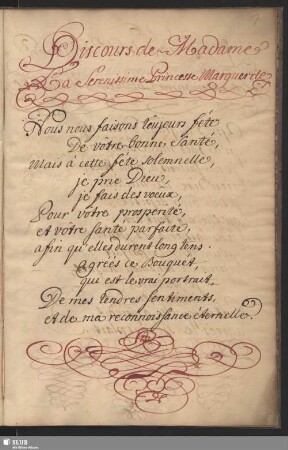 Discours de Madame
La Serenissime Princesse Marguerite
Nous nous faisons toujours fête
De vôtre bonne Santé,
Mais à cette fête solemnelle,
je prie Dieu,
je fais des voeux,
Pour vôtre prosperité,
et vôtre santé parfaite,
afin qu'elles durent long tems.
agréés ce Bouquet,
qui est le vrai portrait,
De mes tendres sentiments,
et de ma reconnoissance éternelle.
SLUB